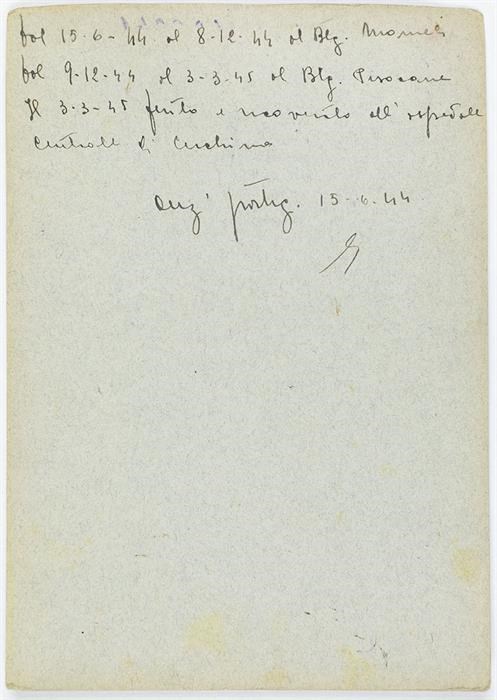 Dal 15-6-44 al 8-12-44 al Btg. Mameli
Dal 9-12-44 al 3-3-45 al Btg. Pisacane
Il 3-3-45 ferito e ricoverato all'ospedale
Centrale di
Anz' partig. 15-6-44